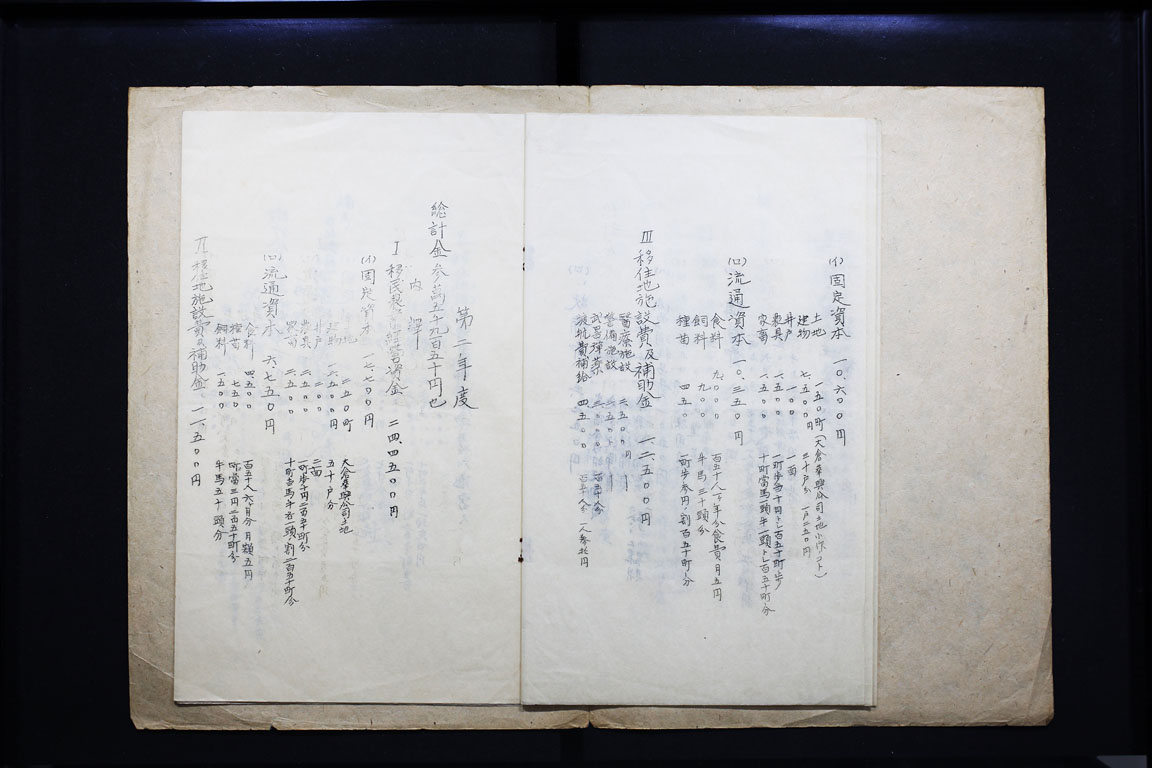 (イ) 固定資本 一〇、六〇〇円
土地 一五〇町 (大倉華興公司土地小作ノコト)
建物 七、五〇〇円 三十戸分 一戸二五〇円
井戸 一〇〇 一面
農具 一、五〇〇 一町歩当十円トシ百五十町歩
家畜 一、五〇〇 十町当馬一頭牛一頭トシ百五十町分
(ロ) 流通資本 一〇、三五〇円
食料 九、〇〇〇 百五十人一ケ年分食費月五円
飼料 九〇〇 牛馬三十頭分
種苗 四五〇 一町歩参円割百五十町分
III 移住地施設費及補助金 一二、五〇〇円
醫療施設 二、五〇〇円
警備施設 二、五〇〇
武器弾薬 三、〇〇〇 百五十人分
渡航費補給 四、五〇〇 百五十人分 一人参拾円
第二年度
総計金参萬五千九百五十円也
内譯
I 移民農営経営資金 二四、四五〇円
(イ) 固定資本 一七、七〇〇円
土地 二五〇町 大倉華興公司土地
建物 一、五〇〇円 五十戸分
井戸 二〇〇 二面
農具 二、五〇〇 一町歩十円二百五十町分
家畜 二、五〇〇 十町当馬牛各一頭割二百五十町分
(ロ) 流通資本 六、七五〇円
食料 四、五〇〇 百五十人六ケ月分月額五円
種苗 七五〇 一町当三円二百五十町分
飼料 一、五〇〇 牛馬五十頭分
II 移住地施設費及補助金 一一、五〇〇円